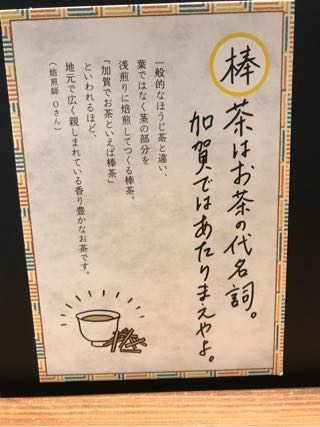 棒茶はお茶の代名詞。
加賀ではあたりまえやよ。
一般的なほうじ茶と違い、
葉ではなく茎の部分を
浅煎りに焙煎してつくる棒茶。
「加賀でお茶といえば棒茶」
といわれるほど、
地元で広く親しまれている香り豊かなお茶です。
（焙煎師 Oさん）